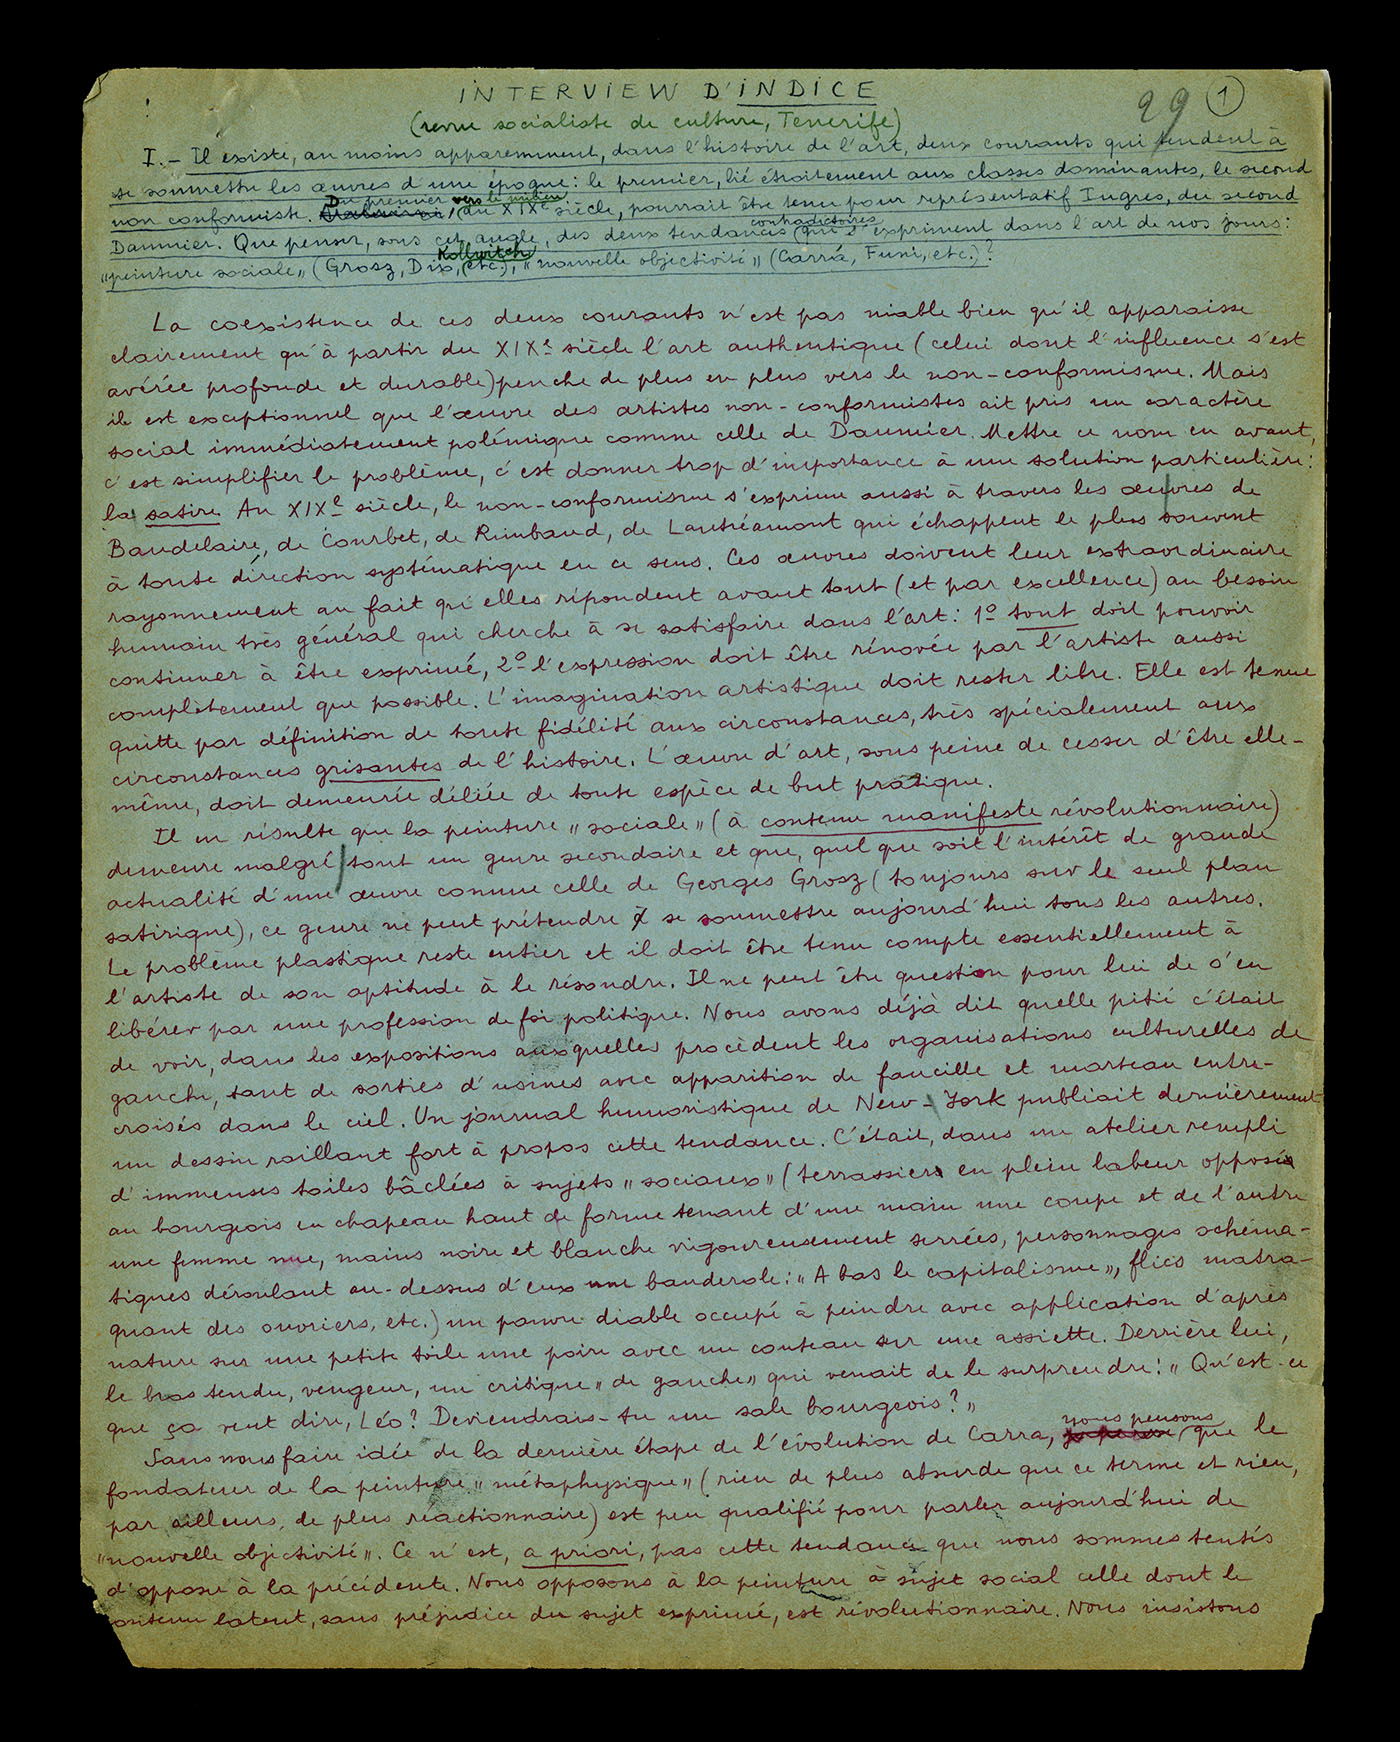 INTERVIEW D'INDICE
29 1
(revue socialiste de culture, Tenerife)
I. – Il existe, au moins apparemment, dans l'histoire de l'art, deux courants qui tendent à
se soumettre les œuvres d'une époque : le premier, lié étroitement aux classes dominantes, le second
Du premier vers le milieu
non conformiste. du XIXe siècle, pourrait être tenu pour représentatif Ingres, du second
contradictoires
Daumier. Que penser, sous cet angle, des deux tendances qui s'expriment dans l'art de nos jours :
Kollwitch
"peinture sociale" (Grosz, Dix, etc.), "nouvelle objectivité" (Carrá, Funi, etc.) ?
La coexistence de ces deux courants n'est pas niable bien qu'il apparaisse
clairement qu'à partir du XIXe siècle l'art authentique (celui dont l'influence s'est
avérée profonde et durable) penche de plus en plus vers le non-conformisme. Mais
il est exceptionnel que l'œuvre des artistes non-conformistes ait pris un caractère
social immédiatement polémique comme celle de Daumier. Mettre ce nom en avant,
c'est simplifier le problème, c'est donner trop d'importance à une solution particulière :
la satire. Au XIXe siècle, le non-conformisme s'exprime aussi à travers les œuvres de
Baudelaire, de Courbet, de Rimbaud, de Lautréamont qui échappent le plus souvent
à toute direction systématique en ce sens. Ces œuvres doivent leur extraordinaire
rayonnement au fait qu'elles répondent avant tout (et par excellence) au besoin
humain très général qui cherche à se satisfaire dans l'art : 1º tout doit pouvoir
continuer à être exprimé, 2º l'expression doit être rénovée par l'artiste aussi
complètement que possible. L'imagination artistique doit rester libre. Elle est tenue
quitte par définition de toute fidélité aux circonstances, très spécialement aux
circonstances grisantes de l'histoire. L'œuvre d'art, sous peine de cesser d'être elle-
même, doit demeurée déliée de toute espèce de but pratique.
Il en résulte que la peinture "sociale" (à contenu manifeste révolutionnaire)
demeure malgré tout un genre secondaire et que, quel que soit l'intérêt de grande
actualité d'une œuvre comme celle de Georges Grosz (toujours sur le seul plan
satirique), ce genre ne peut prétendre à se soumettre aujourd'hui tous les autres.
Le problème plastique reste entier et il doit être tenu compte essentiellement à
l'artiste de son aptitude à le résoudre. Il ne peut être question pour lui de s'en
libérer par une profession de foi politique. Nous avons déjà dit quelle pitié c'était
de voir, dans les expositions auxquelles procèdent les organisations culturelles de
gauche, tant de sorties d'usines avec apparition de faucille et marteau entre-
croisés dans le ciel. Un journal humoristique de New-York publiait dernièrement
un dessin raillant fort à propos cette tendance. C'était, dans un atelier rempli
d'immenses toiles bâclées à sujets "sociaux" (terrassiers en plein labeur opposés
au bourgeois en chapeau haut de forme tenant d'une main une coupe et de l'autre
une femme nue, mains noire et blanche vigoureusement serrées, personnages schéma-
tiques déroulant au-dessus d'eux une banderole : "A bas le capitalisme", flics matra-
quant des ouvriers, etc.) un pauvre diable occupé à peindre avec application d'après
nature sur une petite toile une poire avec un couteau sur une assiette. Derrière lui,
le bras tendu, vengeur, un critique "de gauche" qui venait de le surprendre : "Qu'est-ce
que ça veut dire, Léo ? Deviendrais-tu un sale bourgeois ?"
nous pensons
Sans nous faire idée de la dernière étape de l'évolution de Carra, que le
fondateur de la peinture "métaphysique" (rien de plus absurde que ce terme et rien,
par ailleurs, de plus réactionnaire) est peu qualifié pour parler aujourd'hui de
"nouvelle objectivité". Ce n'est, a priori, pas cette tendance que nous sommes tentés
d'opposer à la précédente. Nous opposons à la peinture à sujet social celle dont le
contenu latent, sans préjudice du sujet exprimé, est révolutionnaire. Nous insistons